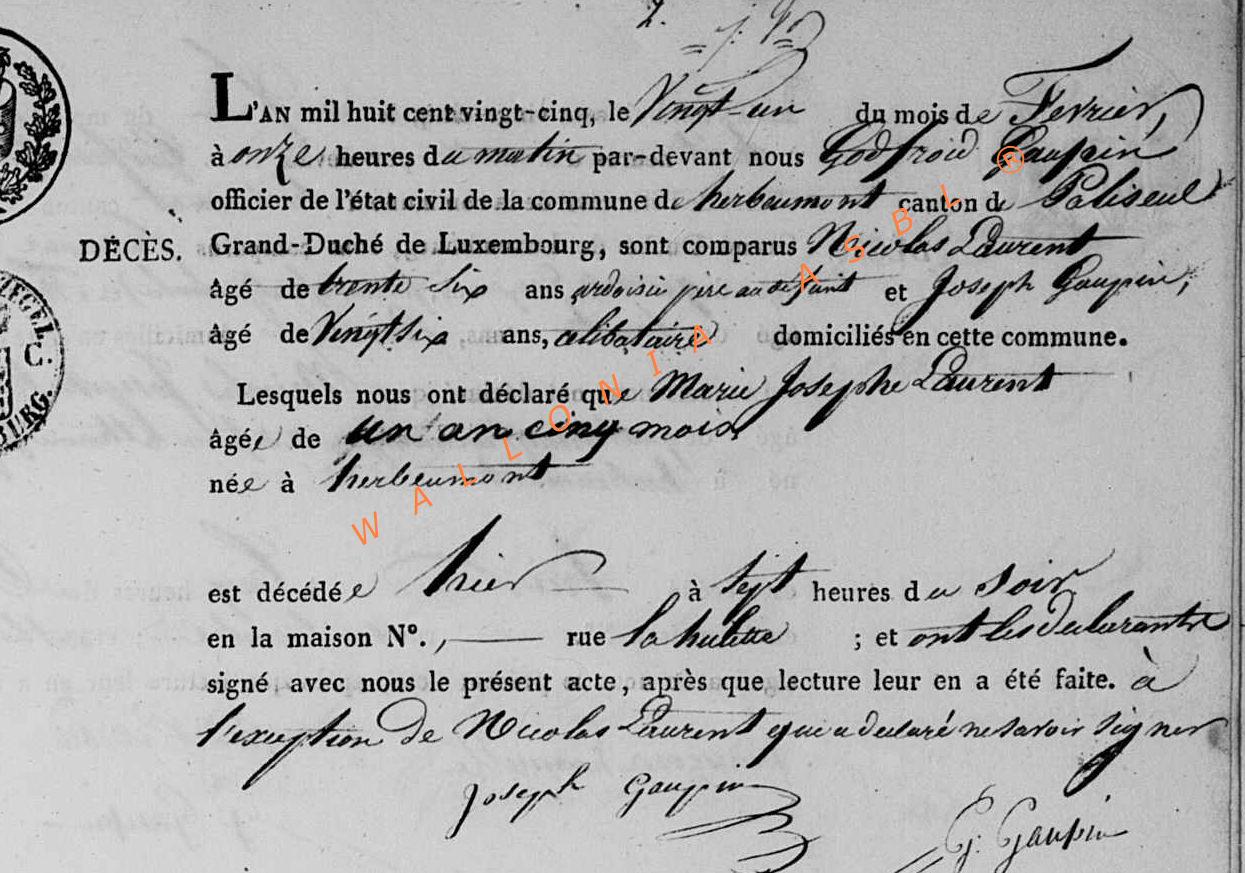 2.
L'AN mil huit cent vingt-cinq, le Vingt-un du mois de Fevrier,
à onze heures du matin par-devant nous Godfroid Gaupin
officier de l'état civil de la commune de herbeumont canton de Paliseul
DÉCÈS. Grand-Duché de Luxembourg, sont comparus Nicolas Laurent
âgé de trente six ans ardoisier père au defunt et Joseph Gaupin,
âgé de Vingt six ans, celibataire domiciliés en cette commune.
Lesquels nous ont déclaré que Marie Josephe Laurent
âgée de un an cinq mois
née à herbeumont
est décédée hier à sept heures du soir
en la maison N°. , rue la hulette ; et ont les declarants
signé avec nous le présent acte, après que lecture leur en a été faite. à
l'exception de Nicolas Laurent qui a declaré ne savoir signer
Joseph Gaupin
G. Gaupin
WALLONIA ASBL ®